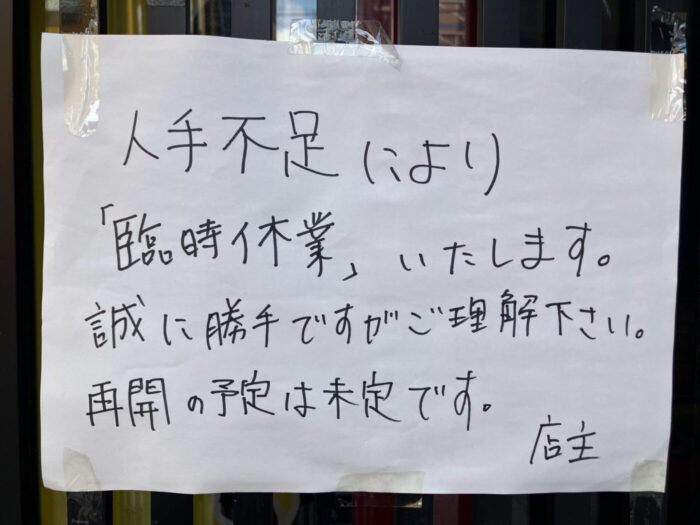 人手不足により
「臨時休業」いたします。
誠に勝手ですがご理解下さい。
再開の予定は未定です。
店主